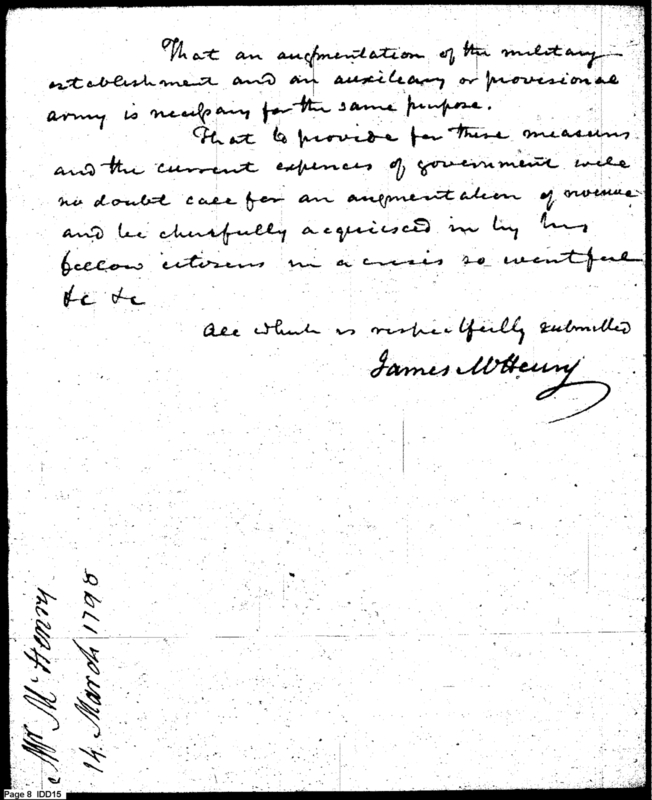 That an augmentation of the military
establishment and an auxileary or provisional
army is necessary for the same purpose.
That to provide for these measures
and the current expences of government will
no doubt call for an augmentation of revenue
and be chearfully acquiesced in by his
fellow citizens in a crisis so eventful
&c &c
All which is respectfully submitted
James McHenry
Mr McHenry
14 March 1798
Page 8 IDD15